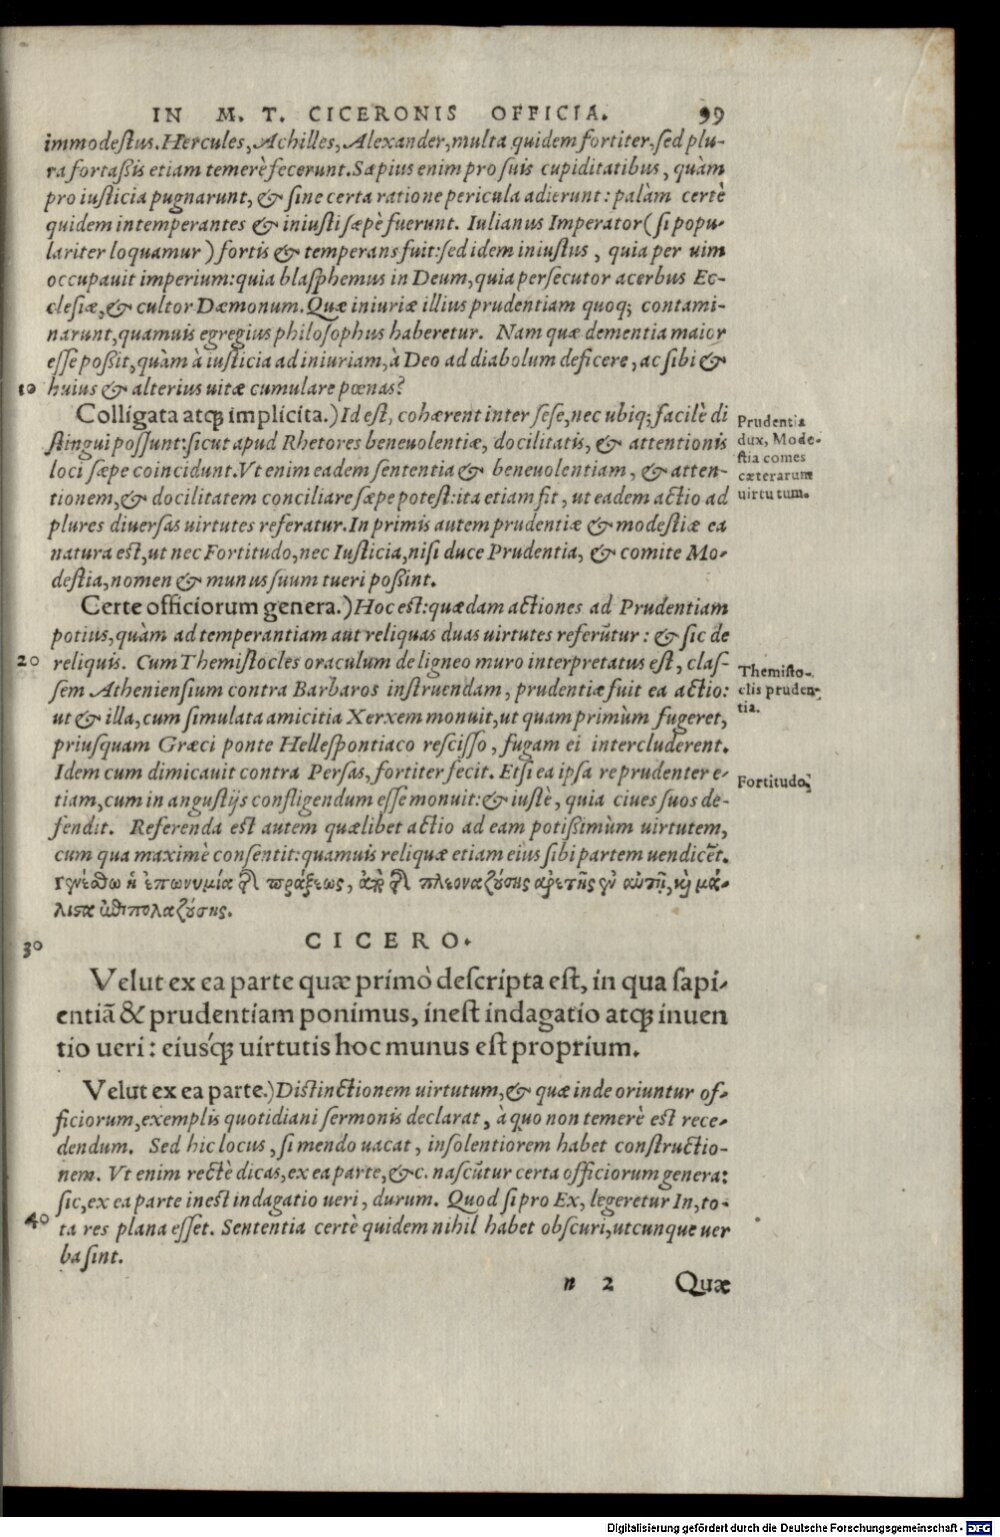 IN M. T. CICERONIS OFFICIA. 99
immodeſtus. Hercules, Achilles, Alexander, multa quidem fortiter, ſed plu-
ra fortaßis etiam temerè fecerunt. Sæpius enim pro ſuis cupiditatibus, quàm
pro iuſticia pugnarunt, & ſine certa ratione pericula adierunt: palàm certè
quidem intemperantes & iniuſti ſæpè fuerunt. Iulianus Imperator (ſi popu-
lariter loquamur) fortis & temperans fuit: ſed idem iniuſtus, quia per uim
occupauit imperium: quia blaſphemus in Deum, quia perſecutor acerbus Ec-
cleſiæ, & cultor Dæmonum. Quæ iniuriæ illius prudentiam quoq; contami-
narunt, quamuis egregius philoſophus haberetur. Nam quæ dementia maior
eſſe poßit, quàm à iuſticia ad iniuriam, à Deo ad diabolum deficere, ac ſibi &
10 huius & alterius uitæ cumulare pœnas?
Colligata atq; implicita.) Id eſt, cohærent inter ſeſe, nec ubiq; facilè di
ſtingui poſſunt: ſicut apud Rhetores beneuolentiæ, docilitatis, & attentionis
loci ſæpe coincidunt. Vt enim eadem ſententia & beneuolentiam, & atten-
tionem, & docilitatem conciliare ſæpe poteſt: ita etiam fit, ut eadem actio ad
plures diuerſas uirtutes referatur. In primis autem prudentiæ & modeſtiæ ea
natura eſt, ut nec Fortitudo, nec Iuſticia, niſi duce Prudentia, & comite Mo-
deſtia, nomen & munus ſuum tueri poßint.
Prudentia
dux, Mode-
ſtia comes
cæterarum
uirtutum.
Certe officiorum genera.) Hoc eſt: quædam actiones ad Prudentiam
potius, quàm ad temperantiam aut reliquas duas uirtutes referũtur: & ſic de
20 reliquis. Cum Themiſtocles oraculum de ligneo muro interpretatus eſt, claſ-
ſem Athenienſium contra Barbaros inſtruendam, prudentiæ fuit ea actio:
ut & illa, cum ſimulata amicitia Xerxem monuit, ut quam primùm fugeret,
priuſquam Græci ponte Helleſpontiaco reſciſſo, fugam ei intercluderent.
Idem cum dimicauit contra Perſas, fortiter fecit. Etſi ea ipſa re prudenter e-
tiam, cum in anguſtijs confligendum eſſe monuit: & iuſtè, quia ciues ſuos de-
fendit. Referenda eſt autem quælibet actio ad eam potißimùm uirtutem,
cum qua maximè conſentit: quamuis reliquæ etiam eius ſibi partem uendicẽt.
Themiſto-
clis pruden-
tia.
Fortitudo.
ἡ ἐπωνυμία πράξεως, πλεοναζούσης ἀρετῆς ἐν αὐτῇ, καὶ μά-
λιστα ἐπιπολαζούσης.
30
CICERO.
Velut ex ea parte quæ primò deſcripta eſt, in qua ſapi-
entiã & prudentiam ponimus, ineſt indagatio atq; inuen
tio ueri: eiusq́; uirtutis hoc munus eſt proprium.
Velut ex ea parte.) Diſtinctionem uirtutum, & quæ inde oriuntur of-
ficiorum, exemplis quotidiani ſermonis declarat, à quo non temerè eſt rece-
dendum. Sed hic locus, ſi mendo uacat, inſolentiorem habet conſtructio-
nem. Vt enim rectè dicas, ex ea parte, &c. naſcũtur certa officiorum genera:
ſic, ex ea parte ineſt indagatio ueri, durum. Quod ſi pro Ex, legeretur In, to-
40 ta res plana eſſet. Sententia certè quidem nihil habet obſcuri, utcunque uer
ba ſint.
n 2 Quæ
Digitalisierung gefördert durch die Deutsche Forschungsgemeinschaft - DFG